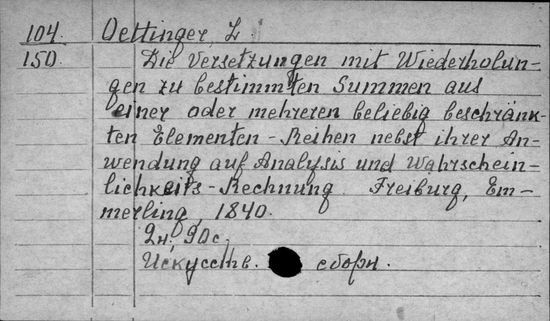 104. Oettinger, L.
150. Die Versetzungen mit Wiederholun-
gen zu bestimmten Summen aus
einer oder mehreren beliebig beschränk-
ten Elementen-Reihen nebst ihrer An-
wendung auf Analysis und Wahrschein-
lichkeits-Rechnung. Freiburg, Em-
merling, 1840.
2н, 90с.
Искусств. сборн.